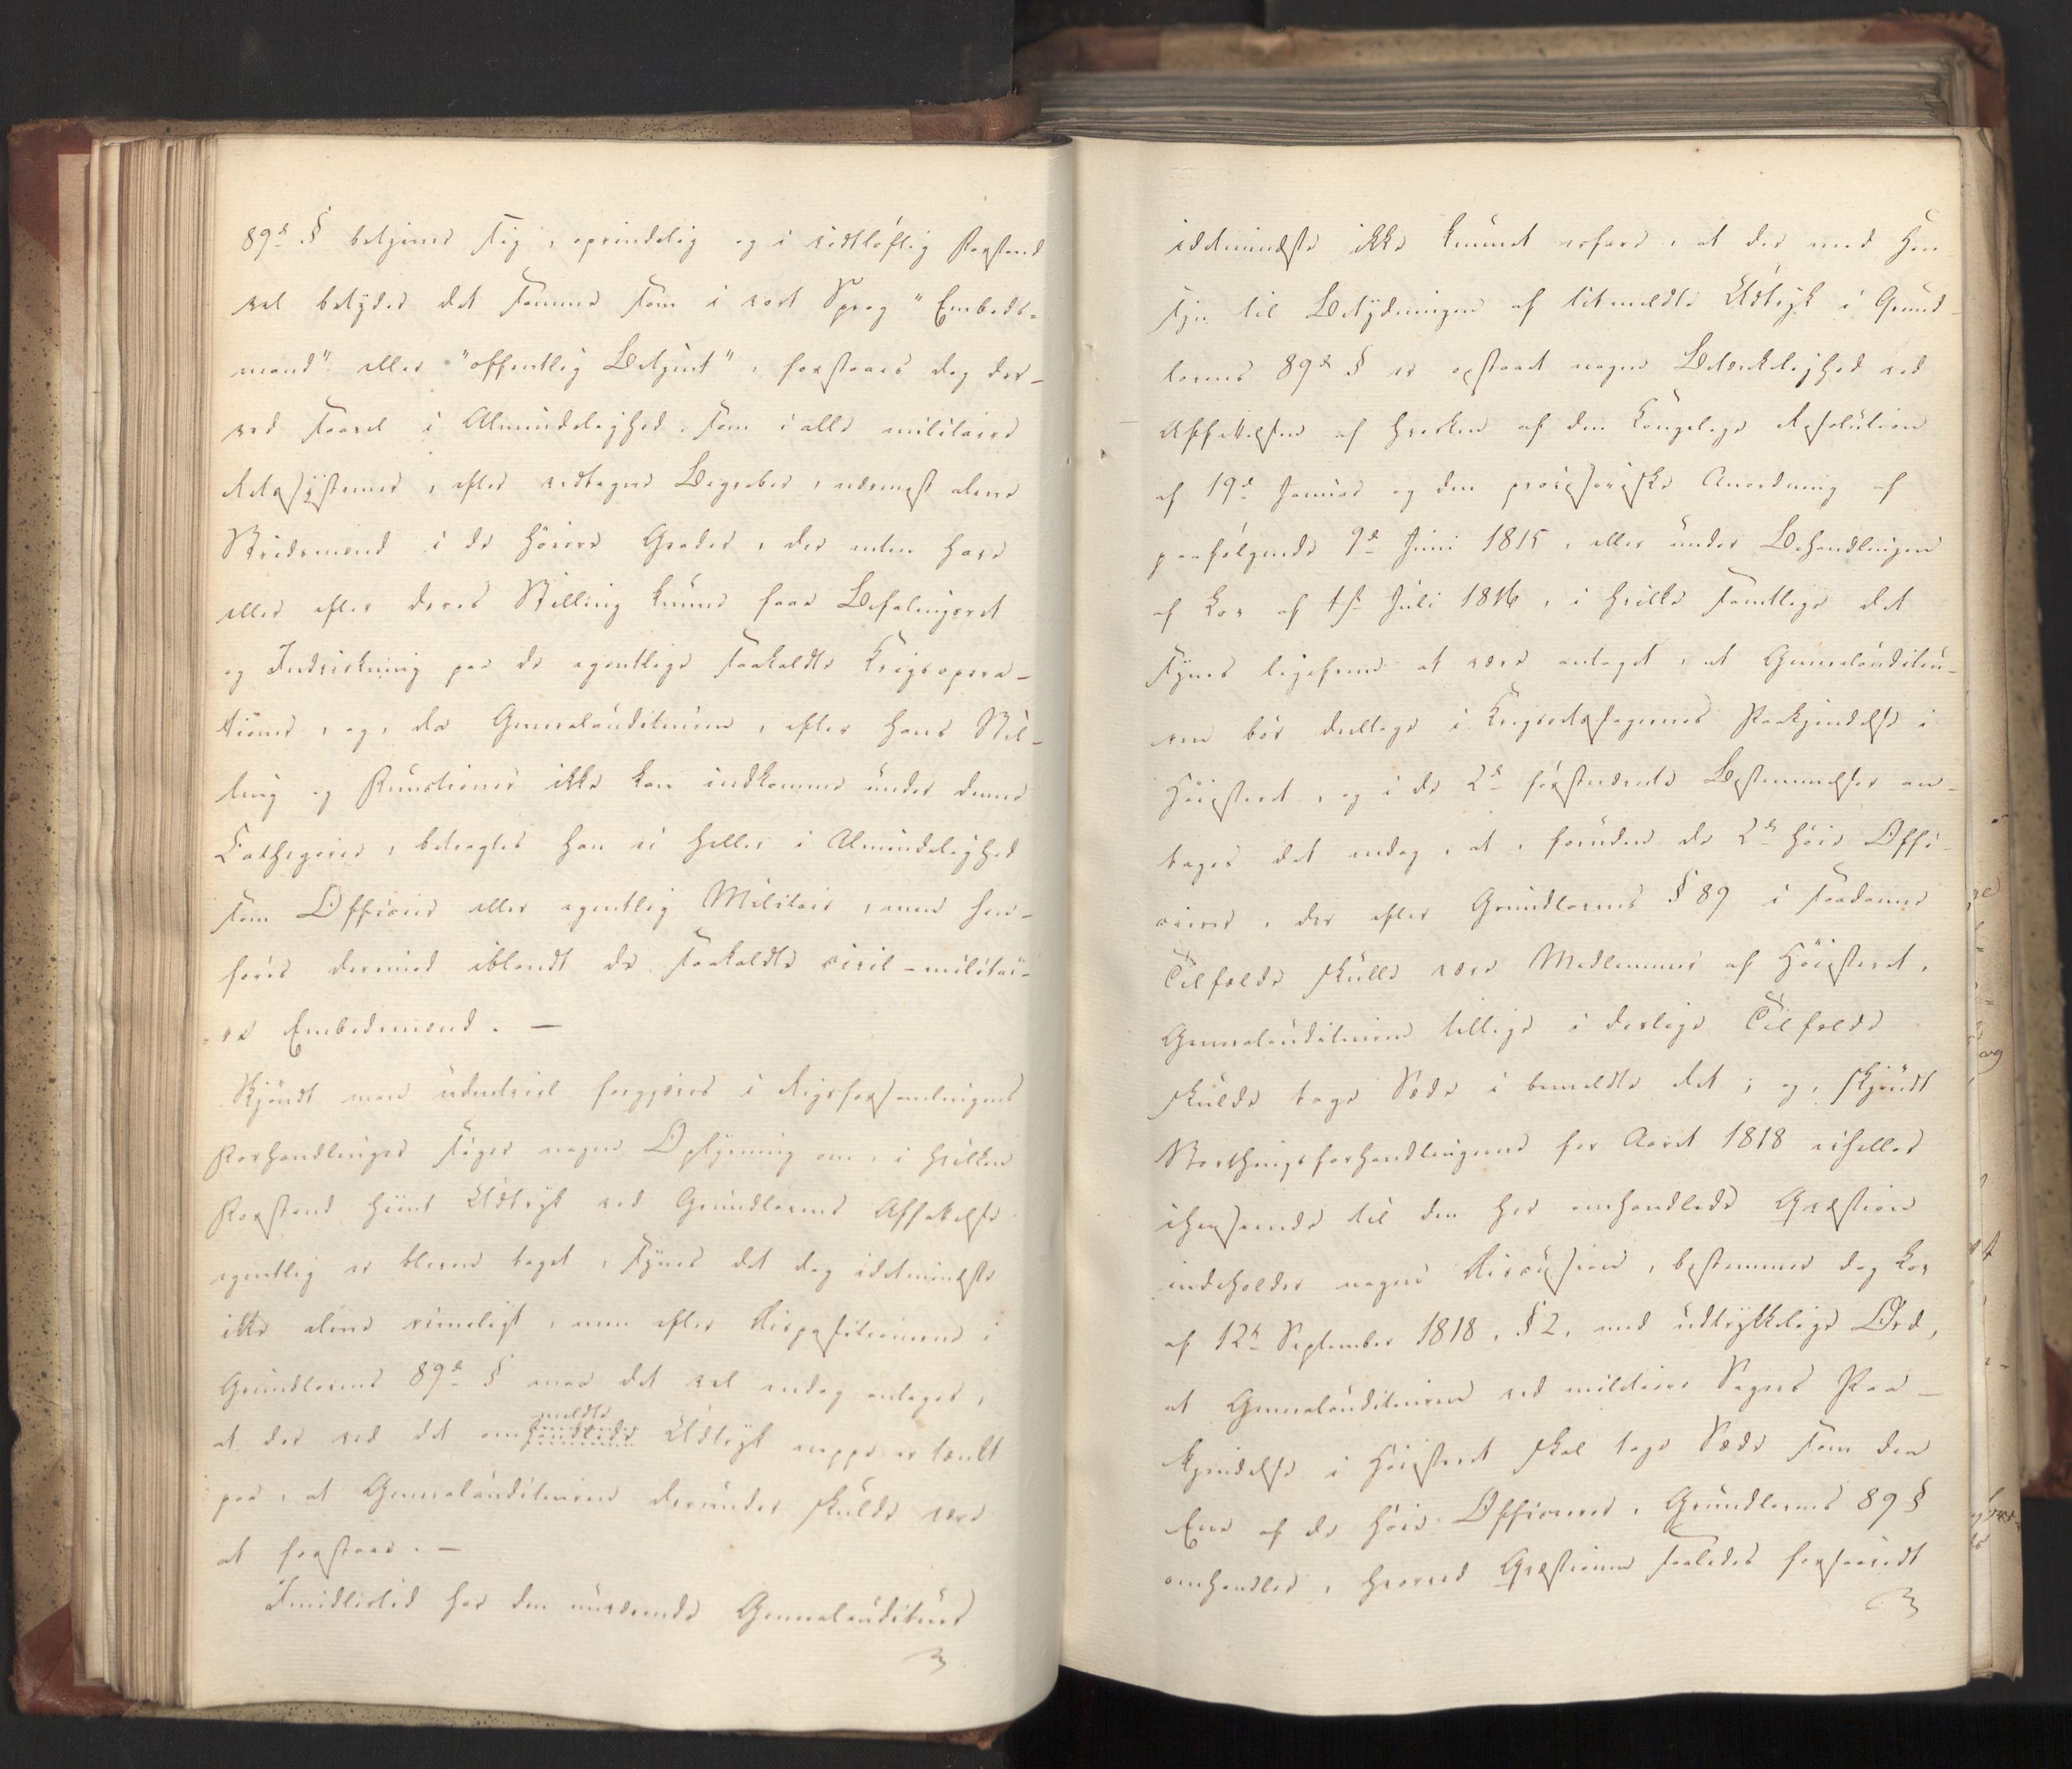 89de § betjener sig, oprindelig og i vidtløftig Forstand
vel betyder det samme som i vort Sprog "Embeds-
mand" eller "offentlig Betjent", forstaaes dog der-
ved saavel i Almindelighed, som i alle militaire
Retssystemer, efter vedtagne Begreber, nærmest alene
Stridsmænd i de høiere Grader, der enten have
eller efter deres Stilling kunne faae Befalingsret
og Indvirkning paa de egentlige saakaldte Krigsopera-
tioner, og, da Generalauditeuren, efter hans Stil-
ling og Functioner ikke kan indkomme under denne
Cathegorie, betragtes han ei heller i Almindelighed
som Officier eller egentlig Militair, men hen-
føres derimod iblandt de saakaldte civil-militai-
re Embedsmænd. —
Skjøndt man udentvivl forgjeves i Rigsforsamlingens
Forhandlinger søger nogen Oplysning om, i hvilken
Forstand hiint Udtryk ved Grundlovens Affattelse
egentlig er bleven taget, synes det dog idetmindste
ikke alene rimeligt, men efter Dispositionerne i
Grundlovens 89de § maa det vel endog antages,
meldte
at der ved det omhandlede Udtryk neppe er tænkt
paa, at Generalauditeuren derunder skulde være
at forstaae. —
Imidlertid har den nuværende Generalauditeur
idetmindste ikke kunnet erfare, at der med Hen-
syn til Betydningen af bemeldte Udtryk i Grund-
lovens 89de § er opstaaet nogen Betænkelighed ved
Affattelsen af hverken af den Kongelige Resolution
af 19de Januar og den provisoriske Anordning af
paafølgende 9de Juni 1815, eller under Behandlingen
af Lov af 1ste Juli 1816, i hvilke samtlige det
synes ligefrem at være antaget, at Generalauditeu-
ren bør deeltage i Krigsretssagernes Paakjendelse i
Høiesteret, og i de 2de førstnævnte Bestemmelser an-
tages det endog, at, foruden de 2de høie Offi-
cierer, der efter Grundlovens § 89 i saadanne
Tilfælde skulle være Medlemmer af Høiesteret,
Generalauditeuren tillige i deslige Tilfælde
skulde tage Sæde i bemeldte Ret; og, skjøndt
Storthingsforhandlingerne for Aaret 1818 eiheller
ihenseende til den her omhandlede Qvæstion
indeholder nogen Discussion, bestemmer dog Lov
af 12te September 1818, § 2, med udtrykkelige Ord,
at Generalauditeuren ved militaire Sagers Paa-
kjendelse i Høiesteret skal tage Sæde som den
Ene af de høie Officierer, Grundlovens 89 §
omhandler, hvorved Qvæstionen saaledes forsaavidt